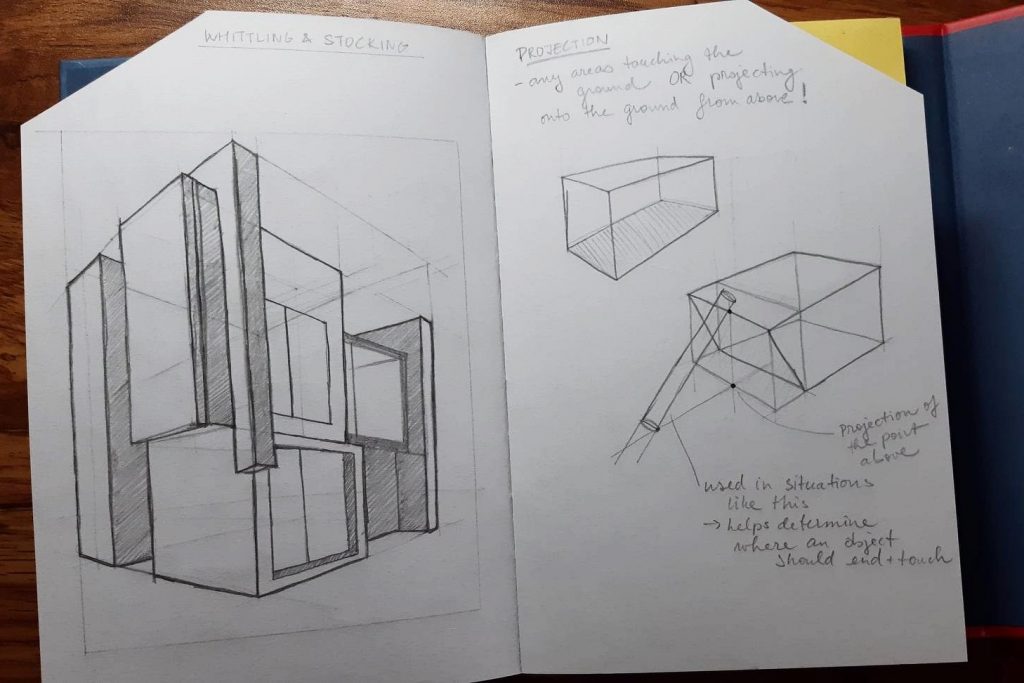 WHITTLING & STOCKING
PROJECTION
- any areas touching the
ground OR projecting
onto the ground from above!
projection of
the point
above
used in situations
like this
→ helps determine
where an object
should end + touch